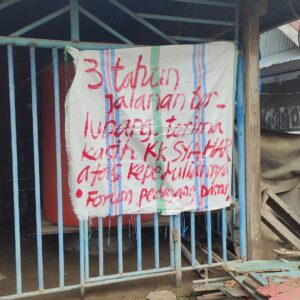 3 tahun
jalanan ber-
lubang terima
kasih KK SYAHAR
atas kepemiliannya
• Forum pedagang pasar